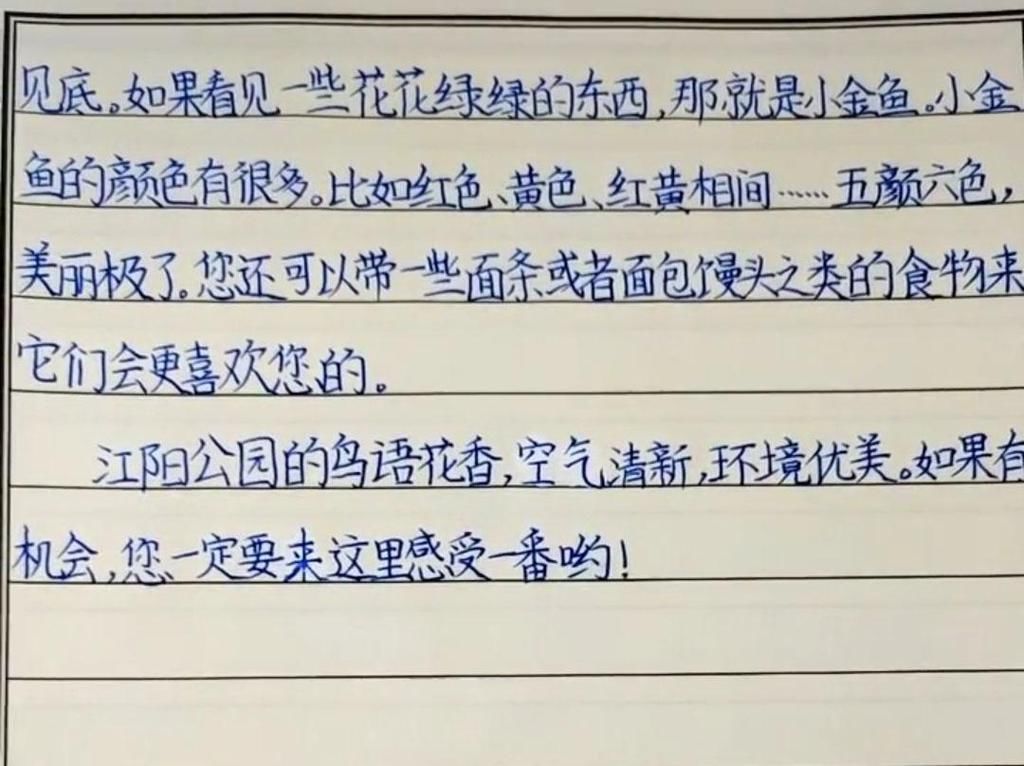 见底。如果看见一些花花绿绿的东西,那就是小金鱼。小金
鱼的颜色有很多。比如红色、黄色、红黄相间……五颜六色,
美丽极了。您还可以带一些面条或者面包馒头之类的食物来
它们会更喜欢您的。
江阳公园的鸟语花香,空气清新,环境优美。如果有
机会,您一定要来这里感受一番哟!